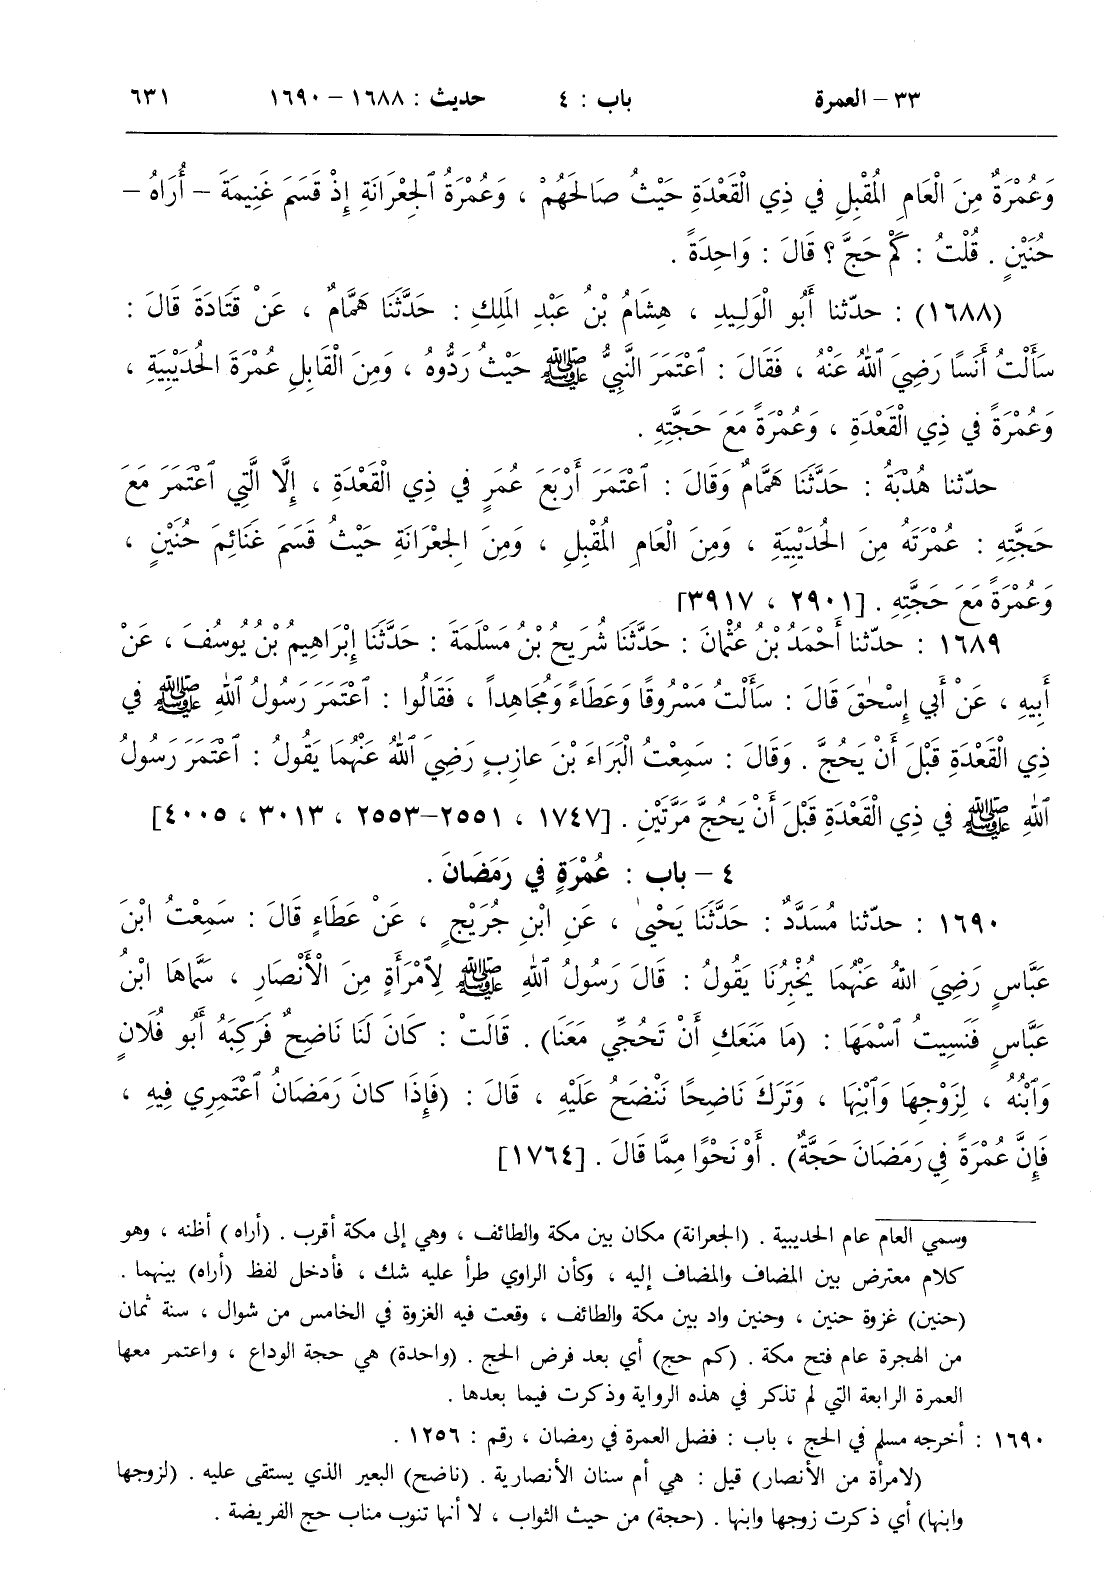 ٣٣ – العمرة باب : ٤ حديث : ١٦٨٨ – ١٦٩٠ ٦٣١
وَعُمْرَةٌ مِنَ الْعَامِ المُقْبِلِ في ذِي الْقَعْدَةِ حَيْثُ صَالَحَهُمْ ، وَعُمْرَةُ ٱلجِعْرَانَةِ إِذْ قَسَمَ غَنِيمَةَ – أُرَاهُ –
حُنَيْنٍ . قُلْتُ : كَمْ حَجَّ ؟ قَالَ : وَاحِدَةً .
(١٦٨٨) : حدّثنا أَبُو الْوَلِيدِ ، هِشَامُ بْنُ عَبْدِ المَلِكِ : حَدَّثَنَا هَمَّامٌ ، عَنْ قَتَادَةَ قَالَ :
سَأَلْتُ أَنَسًا رَضِيَ ٱللهُ عَنْهُ ، فَقَالَ : ٱعْتَمَرَ النَّبِيُّ ﷺ حَيْثُ رَدُّوهُ ، وَمِنَ الْقَابِلِ عُمْرَةَ الحُدَيْبِيَةِ ،
وَعُمْرَةً في ذِي الْقَعْدَةِ ، وَعُمْرَةً مَعَ حَجَّتِهِ .
حدّثنا هُدْبَةُ : حَدَّثَنَا هَمَّامٌ وَقَالَ : ٱعْتَمَرَ أَرْبَعَ عُمَرٍ في ذِي الْقَعْدَةِ ، إِلَّا الَّتِي ٱعْتَمَرَ مَعَ
حَجَّتِهِ : عُمْرَتَهُ مِنَ الحُدَيْبِيَةِ ، وَمِنَ الْعَامِ المُقْبِلِ ، وَمِنَ الجِعْرَانَةِ حَيْثُ قَسَمَ غَنَائِمَ حُنَيْنٍ ،
وَعُمْرَةً مَعَ حَجَّتِهِ . [٢٩٠١ ، ٣٩١٧]
١٦٨٩ : حدّثنا أَحْمَدُ بْنُ عُثْمَانَ : حَدَّثَنَا شُرَيْحُ بْنُ مَسْلَمَةَ : حَدَّثَنَا إِبْرَاهِيمُ بْنُ يُوسُفَ ، عَنْ
أَبِيهِ ، عَنْ أَبِي إِسْحٰقَ قَالَ : سَأَلْتُ مَسْرُوقًا وَعَطَاءً وَمُجَاهِداً ، فَقَالُوا : ٱعْتَمَرَ رَسُولُ ٱللهِ ﷺ في
ذِي الْقَعْدَةِ قَبْلَ أَنْ يَحُجَّ . وَقَالَ : سَمِعْتُ الْبَرَاءَ بْنَ عازِبٍ رَضِيَ ٱللهُ عَنْهُمَا يَقُولُ : ٱعْتَمَرَ رَسُولُ
ٱللهِ ﷺ في ذِي الْقَعْدَةِ قَبْلَ أَنْ يَحُجَّ مَرَّتَيْنِ . [١٧٤٧ ، ٢٥٥١–٢٥٥٣ ، ٣٠١٣ ، ٤٠٠٥]
٤ – باب : عُمْرَةٍ في رَمَضَانَ .
١٦٩٠ : حدّثنا مُسَدَّدٌ : حَدَّثَنَا يَحْيىٰ ، عَنِ ابْنِ جُرَيْجٍ ، عَنْ عَطَاءٍ قَالَ : سَمِعْتُ ابْنَ
عَبَّاسٍ رَضِيَ اللهُ عَنْهُمَا يُخْبِرُنَا يَقُولُ : قَالَ رَسُولُ اللهِ ﷺ لِٱمْرَأَةٍ مِنَ الْأَنْصَارِ ، سَمَّاهَا ابْنُ
عَبَّاسٍ فَنَسِيتُ ٱسْمَهَا : (مَا مَنَعَكِ أَنْ تَحُجِّي مَعَنَا) . قَالَتْ : كَانَ لَنَا نَاضِحٌ فَرَكِبَهُ أَبُو فُلَانٍ
وَٱبْنُهُ ، لِزَوْجِهَا وَٱبْنِهَا ، وَتَرَكَ نَاضِحًا نَنْضَحُ عَلَيْهِ ، قَالَ : (فَإِذَا كانَ رَمَضَانُ ٱعْتَمِرِي فِيهِ ،
فَإِنَّ عُمْرَةً في رَمَضَانَ حَجَّةٌ) . أَوْ نَحْوًا مِمَّا قَالَ . [١٧٦٤]
وسمي العام عام الحديبية . (الجعرانة) مكان بين مكة والطائف ، وهي إلى مكة أقرب . (أراه) أظنه ، وهو
كلام معترض بين المضاف والمضاف إليه ، وكأن الراوي طرأ عليه شك ، فأدخل لفظ (أراه) بينهما .
(حنين) غزوة حنين ، وحنين واد بين مكة والطائف ، وقعت فيه الغزوة في الخامس من شوال ، سنة ثمان
من الهجرة عام فتح مكة . (كم حج) أي بعد فرض الحج . (واحدة) هي حجة الوداع ، واعتمر معها
العمرة الرابعة التي لم تذكر في هذه الرواية وذكرت فيما بعدها .
١٦٩٠ : أخرجه مسلم في الحج ، باب : فضل العمرة في رمضان ، رقم : ١٢٥٦ .
(لامرأة من الأنصار) قيل : هي أم سنان الأنصارية . (ناضح) البعير الذي يستقى عليه . (لزوجها
وابنها) أي ذكرت زوجها وابنها . (حجة) من حيث الثواب ، لا أنها تنوب مناب حج الفريضة .